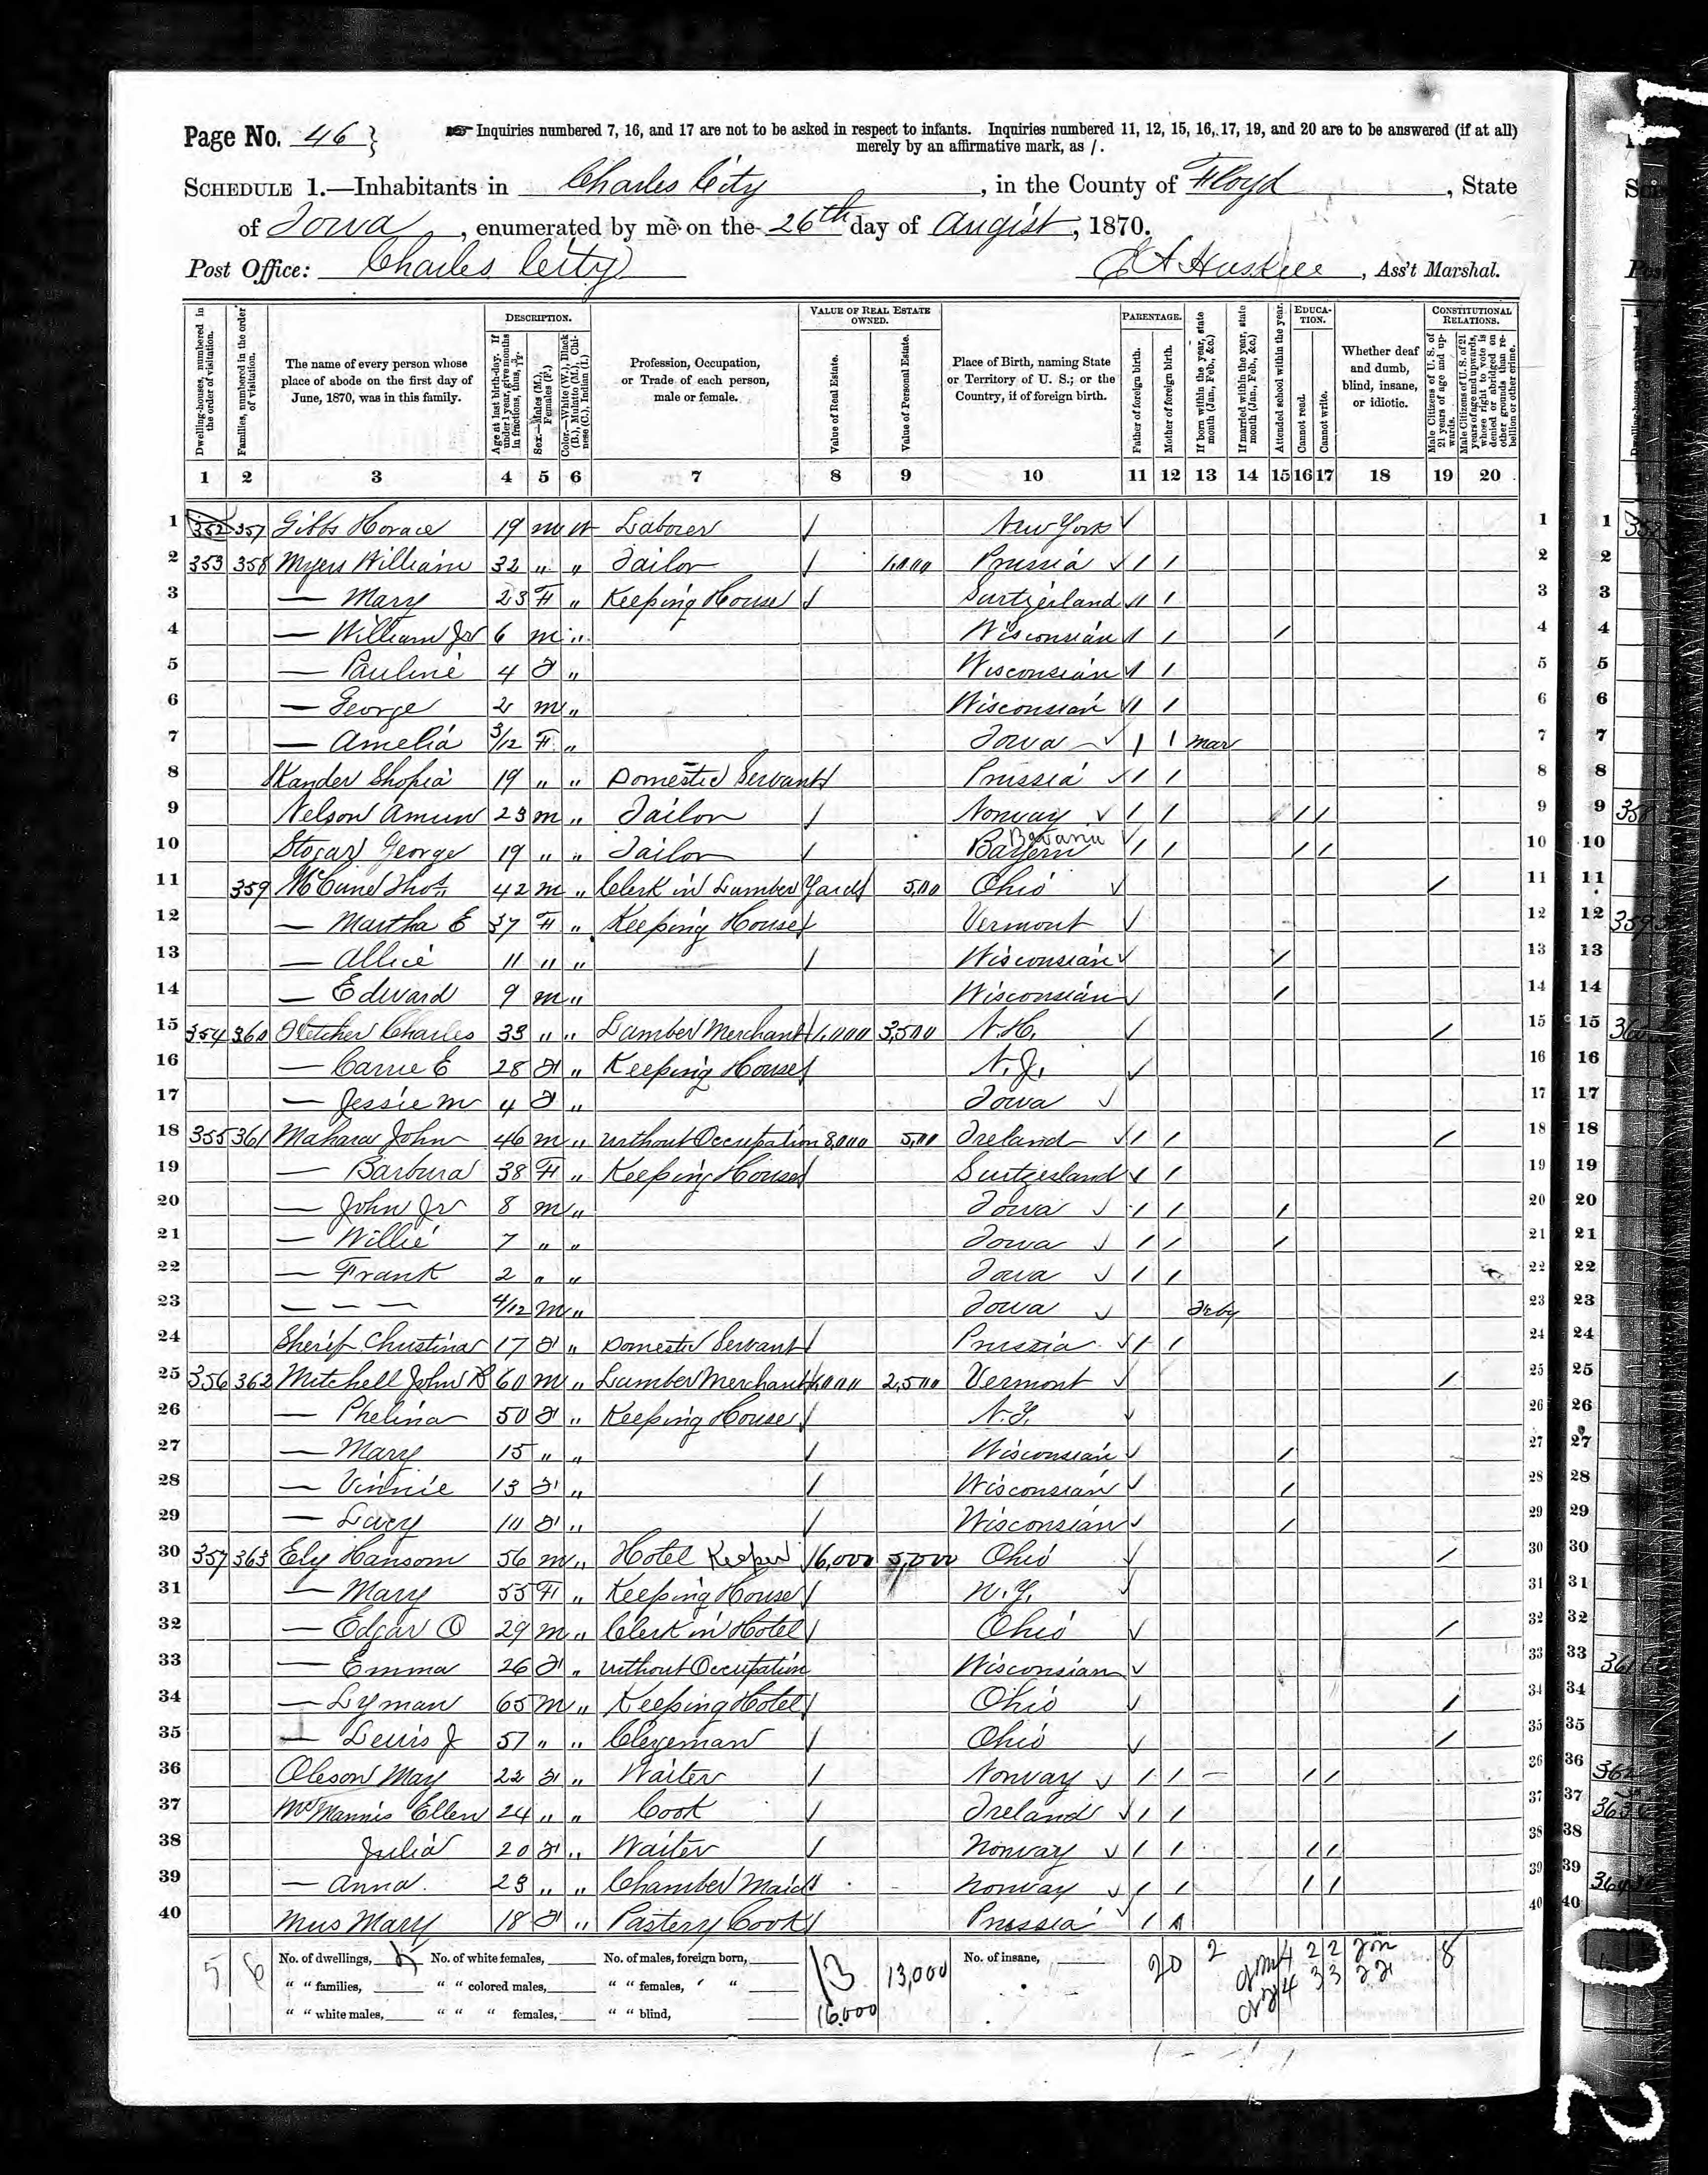 Page No. 46 }
Inquiries numbered 7, 16, and 17 are not to be asked in respect to infants. Inquiries numbered 11, 12, 15, 16, 17, 19, and 20 are to be answered (if at all)
merely by an affirmative mark, as /.
SCHEDULE 1.—Inhabitants in Charles City, in the County of Floyd, State
of Iowa, enumerated by me on the 26th day of Augist, 1870.
Post Office: Charles City
, Ass't Marshal.
DESCRIPTION. VALUE OF REAL ESTATE OWNED. PARENTAGE. EDUCATION. CONSTITUTIONAL RELATIONS.
Dwelling-houses, numbered in the order of visitation.
Families, numbered in the order of visitation.
The name of every person whose place of abode on the first day of June, 1870, was in this family.
Age at last birth-day. If under 1 year, give months in fractions, thus, 3/12
Sex.—Males (M.), Females (F.)
Color.—White (W.), Black (B.), Mulatto (M.), Chinese (C.), Indian (I.)
Profession, Occupation, or Trade of each person, male or female.
Value of Real Estate.
Value of Personal Estate.
Place of Birth, naming State or Territory of U. S.; or the Country, if of foreign birth.
Father of foreign birth.
Mother of foreign birth.
If born within the year, state month (Jan., Feb., &c.)
If married within the year, state month (Jan., Feb., &c.)
Attended school within the year.
Cannot read.
Cannot write.
Whether deaf and dumb, blind, insane, or idiotic.
Male Citizens of U. S. of 21 years of age and upwards.
Male Citizens of U. S. of 21 years of age and upwards, whose right to vote is denied or abridged on other grounds than rebellion or other crime.
1 2 3 4 5 6 7 8 9 10 11 12 13 14 15 16 17 18 19 20
1 352 357 Gibbs Horace 19 m W Laborer / New York 1
2 353 358 Myers William 32 " " Tailor / 1,000 Prussia / / 2
3 — Mary 23 F " Keeping House / Surtzerland / / 3
4 — William Jr 6 m " Wisconsian / / / 4
5 — Pauline 4 F " Wisconsian / / 5
6 — George 2 m " Wisconsian / / 6
7 — Amelia 3/12 F " Iowa / / Mar 7
8 Kander Shopia 19 " " Domestic Servant / Prussia / / 8
9 Nelson Amun 23 m " Tailor / Norway / / / / 9
10 George 19 " " Tailor / Bayern Bavaria / / / / 10
11 359 McCune Thos. 42 m " Clerk in Lumber Yard / 500 Ohio / 11
12 — Martha E 37 F " Keeping House / Vermont 12
13 — Allice 11 " " / Wisconsian / 13
14 — Edward 9 m " Wisconsian / 14
15 354 360 Fletcher Charles 33 " " Lumber Merchant 1,000 3,500 N.H. / 15
16 — Carrie E 28 F " Keeping House / N.J. 16
17 — Jessie M 4 F " Iowa 17
18 355 361 Mahara John 46 m " without Occupation 8,000 500 Ireland / / / 18
19 — Barbura 38 F " Keeping House / Surtzerland / / 19
20 — John Jr 8 m " Iowa / / / 20
21 — Willie 7 " " Iowa / / / 21
22 — Frank 2 " " Iowa / / 22
23 — — — 4/12 m " Iowa Feby 23
24 Sherif Christina 17 F " Domestic Servant / Prussia / / 24
25 356 362 Mitchell John B 60 m " Lumber Merchant 1,000 2,500 Vermont / 25
26 — Phelina 50 F " Keeping House / N.Y. 26
27 — Mary 15 " " / Wisconsian / 27
28 — Vinnie 13 F " / Wisconsian / 28
29 — Lucy 10 F " / Wisconsian / 29
30 357 363 Ely Hansom 56 m " Hotel Keeper 16,000 5,000 Ohio / 30
31 — Mary 55 F " Keeping House / N.Y. 31
32 — Edgar O 29 m " Clerk in Hotel / Ohio / 32
33 — Emma 26 F " without Occupation Wisconsian 33
34 — Lyman 65 m " Keeping Hotel / Ohio / 34
35 — Lewis J 57 " " Clegeman / Ohio / 35
36 Oleson May 22 F " Waiter / Norway / / — / / 36
37 McMannis Ellen 24 " " Cook / Ireland / / 37
38 Julia 20 F " Waiter / Norway / / / / 38
39 — Anna. 23 " " Chamber Maid / Norway / / / / 39
40 Mus Mary 18 F " Pastery Cook / Prussia / / 40
5 6 No. of dwellings, No. of white females, No. of males, foreign born, 13 13,000 No. of insane, 20 2 4 2 2 2m 8
" " families, " " colored males, " " females, " " 4 3 3
" " white males, " " " females, " " blind, 16,000